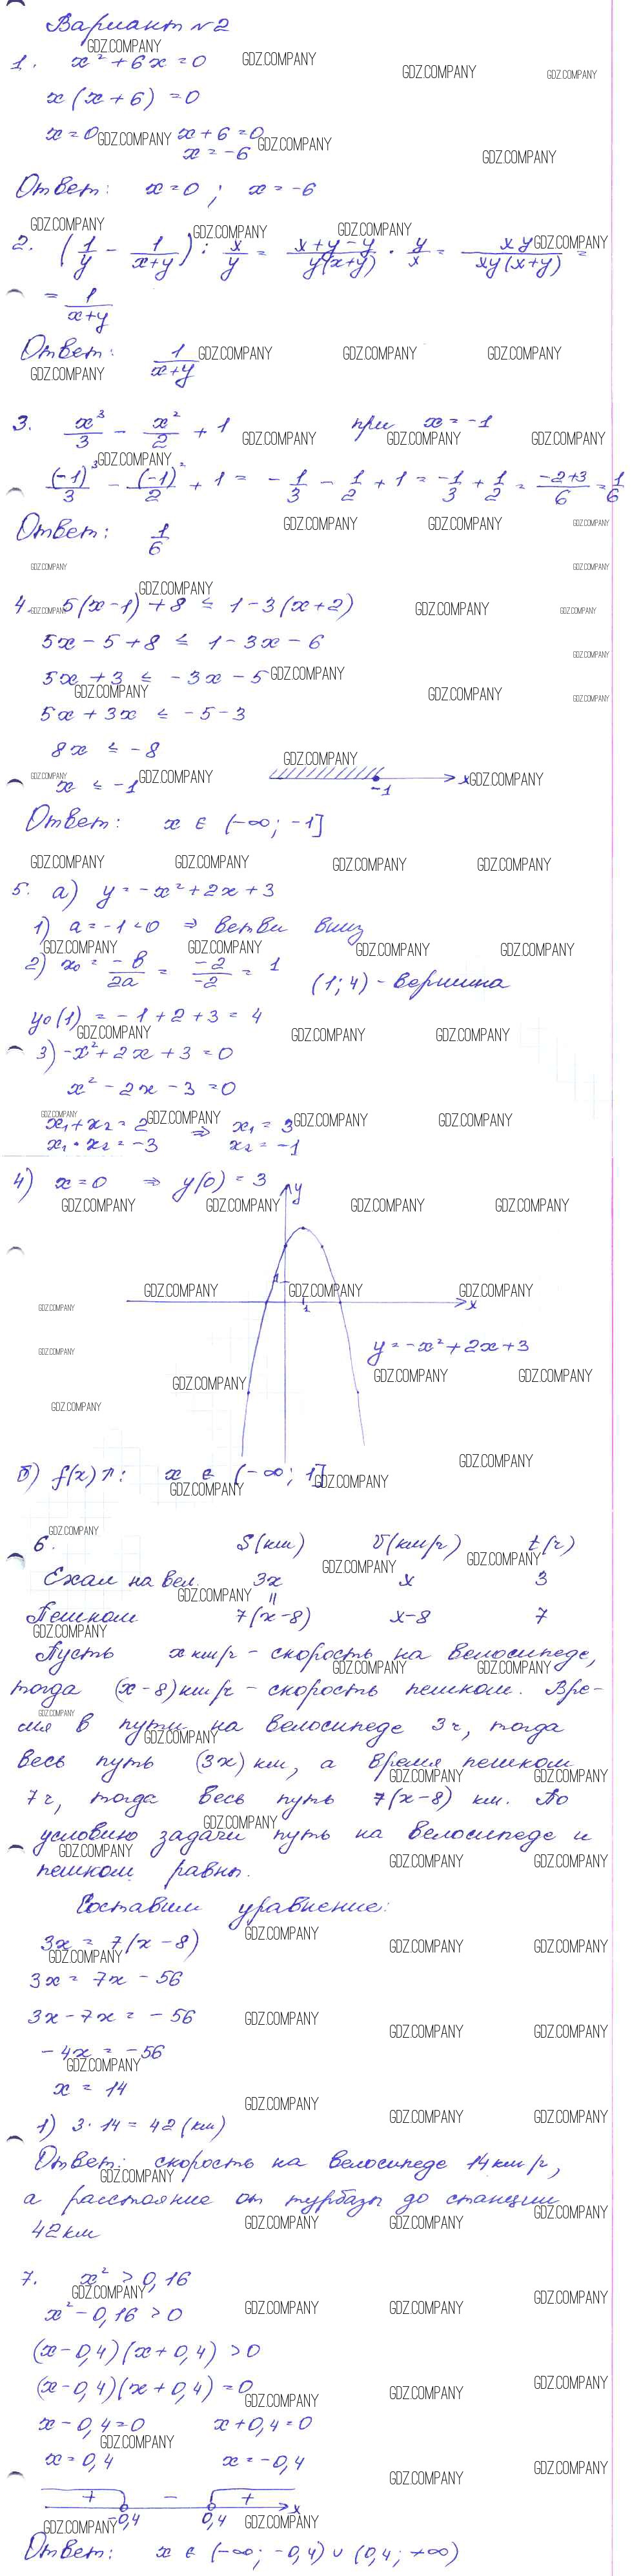 Вариант №2
1. x² + 6x = 0
x(x + 6) = 0
x = 0 x + 6 = 0
x = -6
Ответ: x = 0 ; x = -6
2. (1/y - 1/(x+y)) : x/y = (x+y-y)/(y(x+y)) · y/x = xy/(xy(x+y)) =
= 1/(x+y)
Ответ: 1/(x+y)
3. x³/3 - x²/2 + 1 при x = -1
(-1)³/3 - (-1)²/2 + 1 = -1/3 - 1/2 + 1 = -1/3 + 1/2 = (-2+3)/6 = 1/6
Ответ: 1/6
4. 5(x-1) + 8 ≤ 1 - 3(x+2)
5x - 5 + 8 ≤ 1 - 3x - 6
5x + 3 ≤ -3x - 5
5x + 3x ≤ -5 - 3
8x ≤ -8
x ≤ -1
-1 x
Ответ: x ∈ (-∞; -1]
5. а) y = -x² + 2x + 3
1) a = -1 < 0 ⇒ ветви вниз
2) x₀ = -в/2a = -2/-2 = 1 (1; 4) - вершина
y₀(1) = -1 + 2 + 3 = 4
3) -x² + 2x + 3 = 0
x² - 2x - 3 = 0
x₁ + x₂ = 2 ⇒ x₁ = 3
x₁ · x₂ = -3 x₂ = -1
4) x = 0 ⇒ y(0) = 3
y
1
1 x
y = -x² + 2x + 3
б) f(x)↗: x ∈ (-∞; 1]
6. S(км) V(км/ч) t(ч)
Ехал на вел. 3x x 3
=
Пешком 7(x-8) x-8 7
Пусть x км/ч - скорость на велосипеде,
тогда (x-8) км/ч - скорость пешком. Вре-
мя в пути на велосипеде 3ч, тогда
весь путь (3x) км, а время пешком
7ч, тогда весь путь 7(x-8) км. По
условию задачи путь на велосипеде и
пешком равны.
Составим уравнение:
3x = 7(x-8)
3x = 7x - 56
3x - 7x = -56
-4x = -56
x = 14
1) 3 · 14 = 42 (км)
Ответ: скорость на велосипеде 14 км/ч,
а расстояние от турбазы до станции
42 км
7. x² > 0,16
x² - 0,16 > 0
(x-0,4)(x+0,4) > 0
(x-0,4)(x+0,4) = 0
x - 0,4 = 0 x + 0,4 = 0
x = 0,4 x = -0,4
+ - +
-0,4 0,4 x
Ответ: x ∈ (-∞; -0,4) ∪ (0,4; +∞)
GDZ.COMPANY